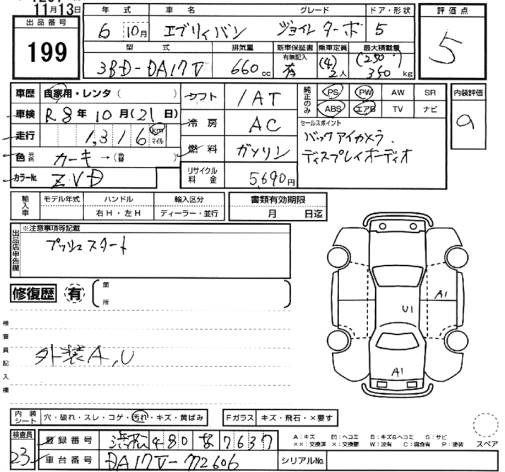 11月13日
出品番号 199
年式 車名 グレード ドア・形状
6 10月 エブリィバン ジョインターボ 5
型式 排気量 新車保証書 乗車定員 最大積載量
有無記入 (4) (250)
3BD-DA17V 660cc 有 2人 350kg
評価点 5
車歴 自家用・レンタ( )
車検 R8年10月(21)日
走行 1,316 km マイル
色 カーキ→(替 )
カラーNo. ZVD
シフト 1AT
冷房 AC
燃料 ガソリン
リサイクル料金 5690円
純正のみ PS PW AW SR
ABS エアB TV ナビ
セールスポイント
バックアイカメラ
ディスプレイオーディオ
内装評価 a
輸入車 モデル年式 ハンドル 輸入区分
右H・左H ディーラー・並行
書類有効期限
月 日迄
出品店申告欄 ※注意事項等記載
プッシュスタート
修復歴 有 箇所
検査員記入欄
外装A,U
A1
U1
A1
内装シート 穴・破れ・スレ・コゲ・汚れ・キズ・黄ばみ
Fガラス キズ・飛石・×要す
検査員 23
登録番号 浜松480な7637
車台番号 DA17V-772606
シリアルNo.
A:キズ U:凹ミ B:キズ&ヘコミ S:サビ
××:交換済 ×:要交換 W:波有 C:腐食有 P:塗装
スペア